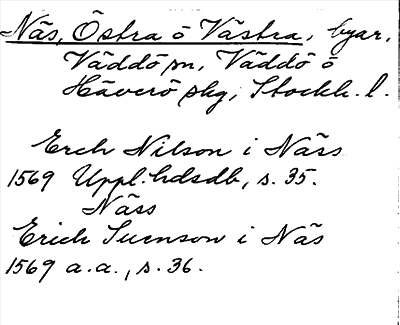 Näs, Östra o Västra, byar,
Väddö sn, Väddö o
Häverö skg, Stockh. l.
Erch Nilson i Näss
1569 Uppl. hdsdb, s. 35.
Näss
Erich Suenson i Näs
1569 a.a., s. 36.